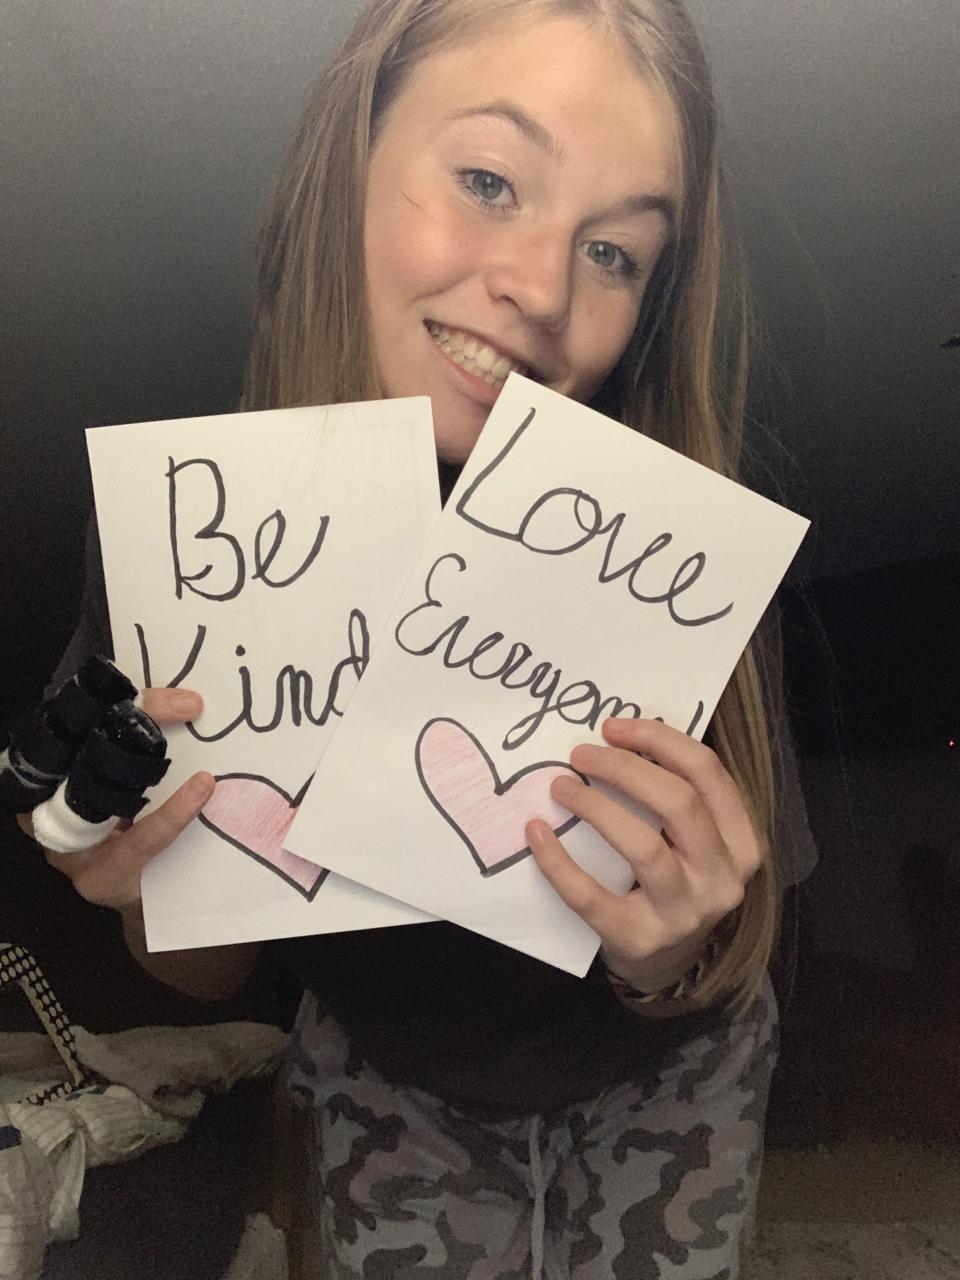 Be
Kind
Love
Everyone!